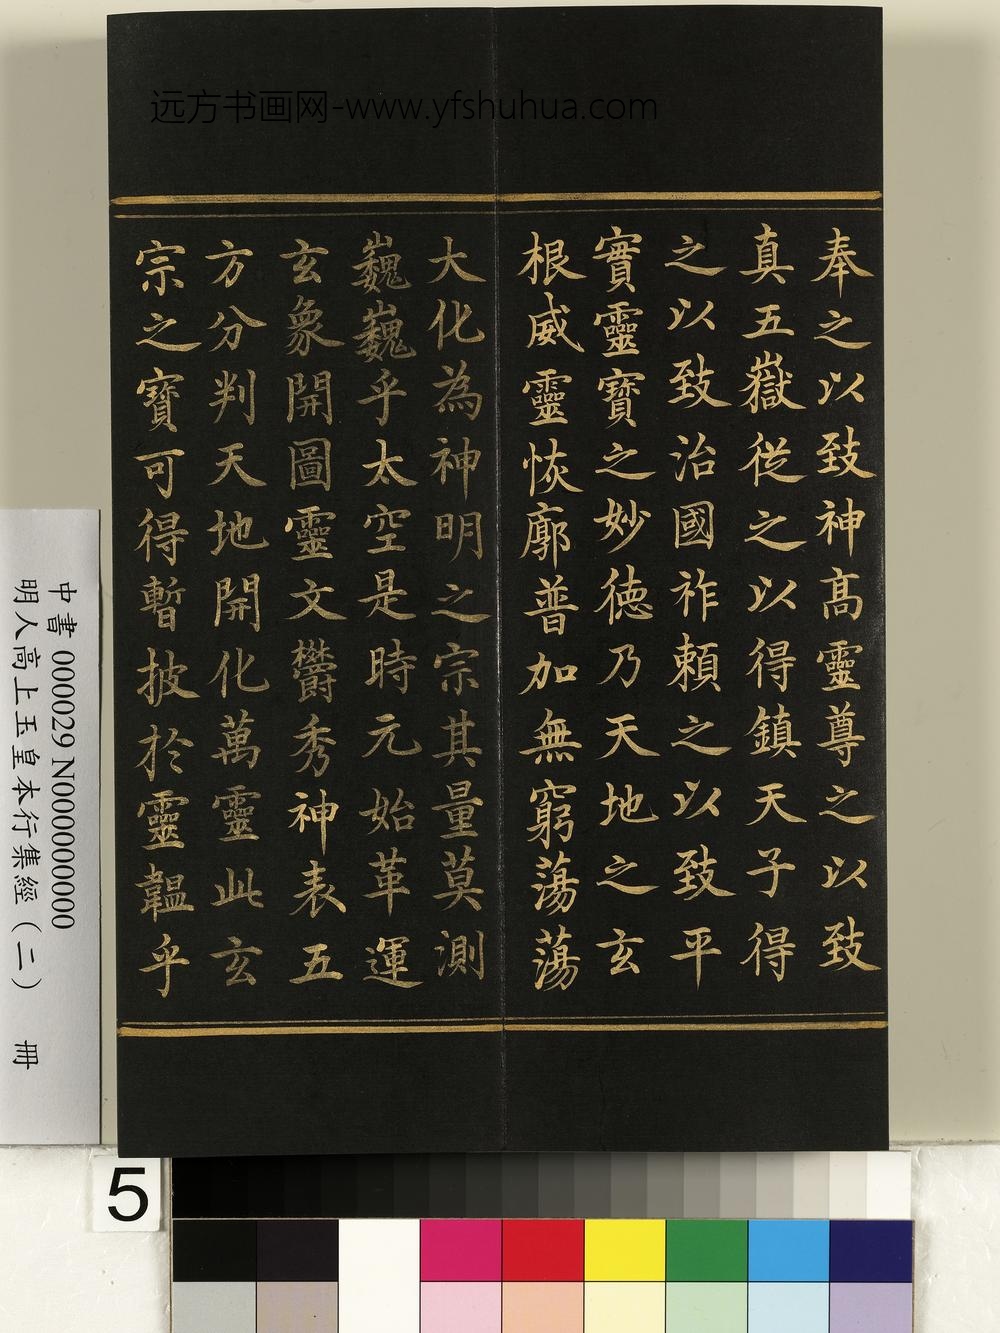 远方书画网-www.yfshuhua.com
奉之以致神高靈尊之以致
真五嶽従之以得鎮天子得
之以致治國祚頼之以致平
實靈寶之妙徳乃天地之玄
根威靈恢廓普加無窮蕩蕩
大化為神明之宗其量莫測
巍巍乎太空是時元始革運
玄象開圖靈文欝秀神表五
方分判天地開化萬靈此玄
宗之寶可得暫披於靈韞乎
中書 000029 N000000000
明人高上玉皇本行集經(二) 冊
5